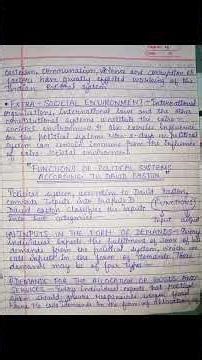 Casteism, communalism, violence and corruption etc
factors have greatly affected working of the
Indian political system
• EXTRA-SOCIETAL ENVIRONMENT - International
organisations, international laws and the other
constitutional systems constitute the extra-
societal environment. It also exerts influence
on the political systems. Now-a-days no political
system can remain immune from the influence
of extra societal environment.
FUNCTIONS OF POLITICAL SYSTEMS
ACCORDING TO DAVID EASTON
Political system, according to David Easton,
converts inputs into outputs.
David Easton classifies the inputs (FUNCTIONS)
into two categories Input output
INPUTS IN THE FORM OF DEMANDS - Every
individual expects the fulfilment of some of his
demands from the political system, which we
call inputs in the form of demands. These
demands may be of four types
DEMANDS FOR THE ALLOCATION OF GOODS AND
SERVICES - Every individual expects that political
system should ensure reasonable wages
these we call demands in the form of allocation